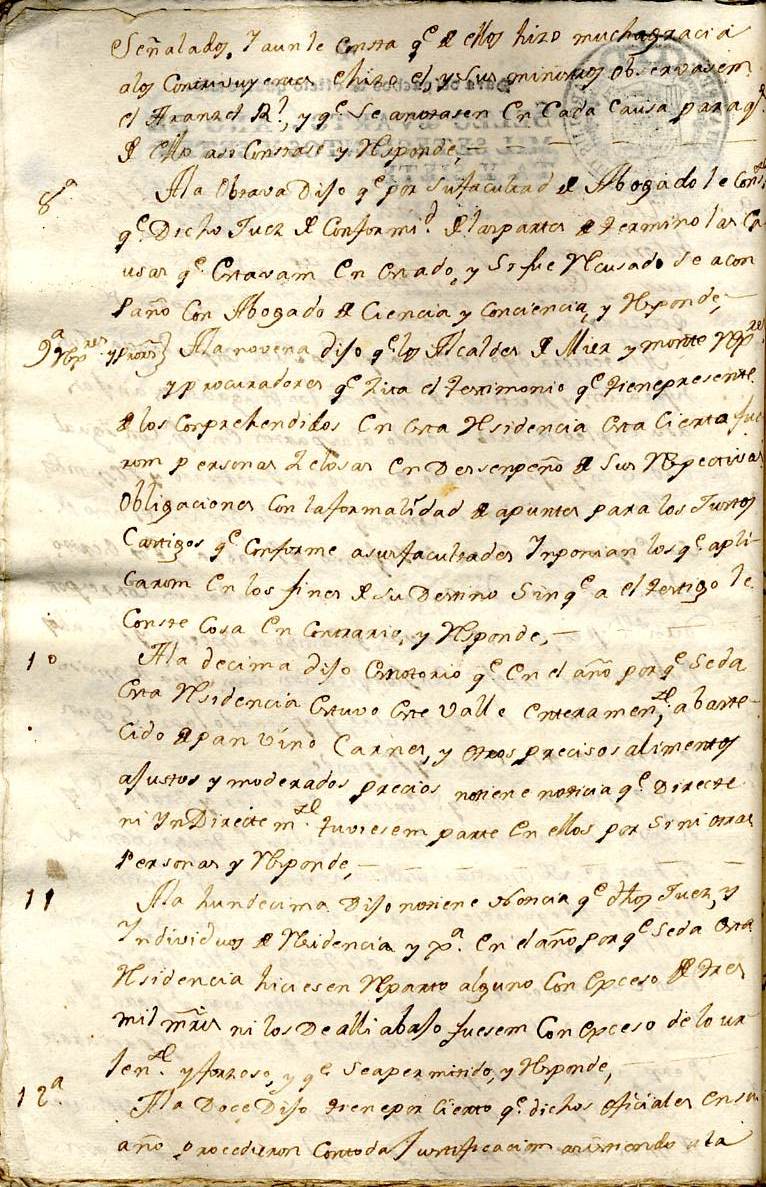 Señalados, Y aun le Consta q.e de ellos hizo mucha gracia
a los Contrivuyentes e hizo el y sus ministros observasem
el Aranzel R.l, y q.e se anotasen En Cada Causa para q.e
de ello asi Constase y Responde,
8.a Ala Obtava Dijo q.e por su facultad de Abogado le Const.a
q.e Dicho Juez de Conformi.d de las partes determino las Ca
usas q.e Estavam En Estado, y Si fue Recusado Se acom
pañó Con Abogado de Ciencia y Conciencia, y Rsponde,
9.a Rex.res y Procs. Ala novena dijo q.e los Alcaldes de Mier y monte Rex.res
y procuradores q.e Zita el testimonio q.e tiene presente
de los Comprehendidos En Esta Rsidencia Esta Cierto fue
rom personas Zelosas En Dessenpeño de Sus Rspectivas
Obligaciones Con la formalidad de apuntes para los Justos
Castigos q.e Conforme a sus facultades Ynponian los q.e apli
carom En los fines de su Destino Sin q.e a el testigo le
Conste Cosa En Contrario, y Rsponde,
10 Ala decima dijo Es notorio q.e En el año por q.e Se da
Esta Rsidencia Estuvo Este Valle Enteramen.te abaste
cido de pan vino Carnes, y otros precisos alimentos
a justos y moderados precios no tiene noticia q.e Directe
ni YnDirectem.te tuviesem parte En ellos por Si ni otras
Personas y Rsponde,
11 Ala hundecima Dijo no tiene noticia q.e dhos Juez, y
Yndividuos de Rsidencia y p.a En el año por q.e Se da Esta
Rsidencia hiciesen Reparto alguno Con Epceso de tres
mil mrs. ni los De alli abajo fuesem Con Epceso de lo ur
jen.te y forzoso, y q.e Sea permitido, y Rsponde,
12.a Ala Doce Dijo tiene por Cierto q.e dichos oficiales En su
año procedieron Con toda Justificacion a la